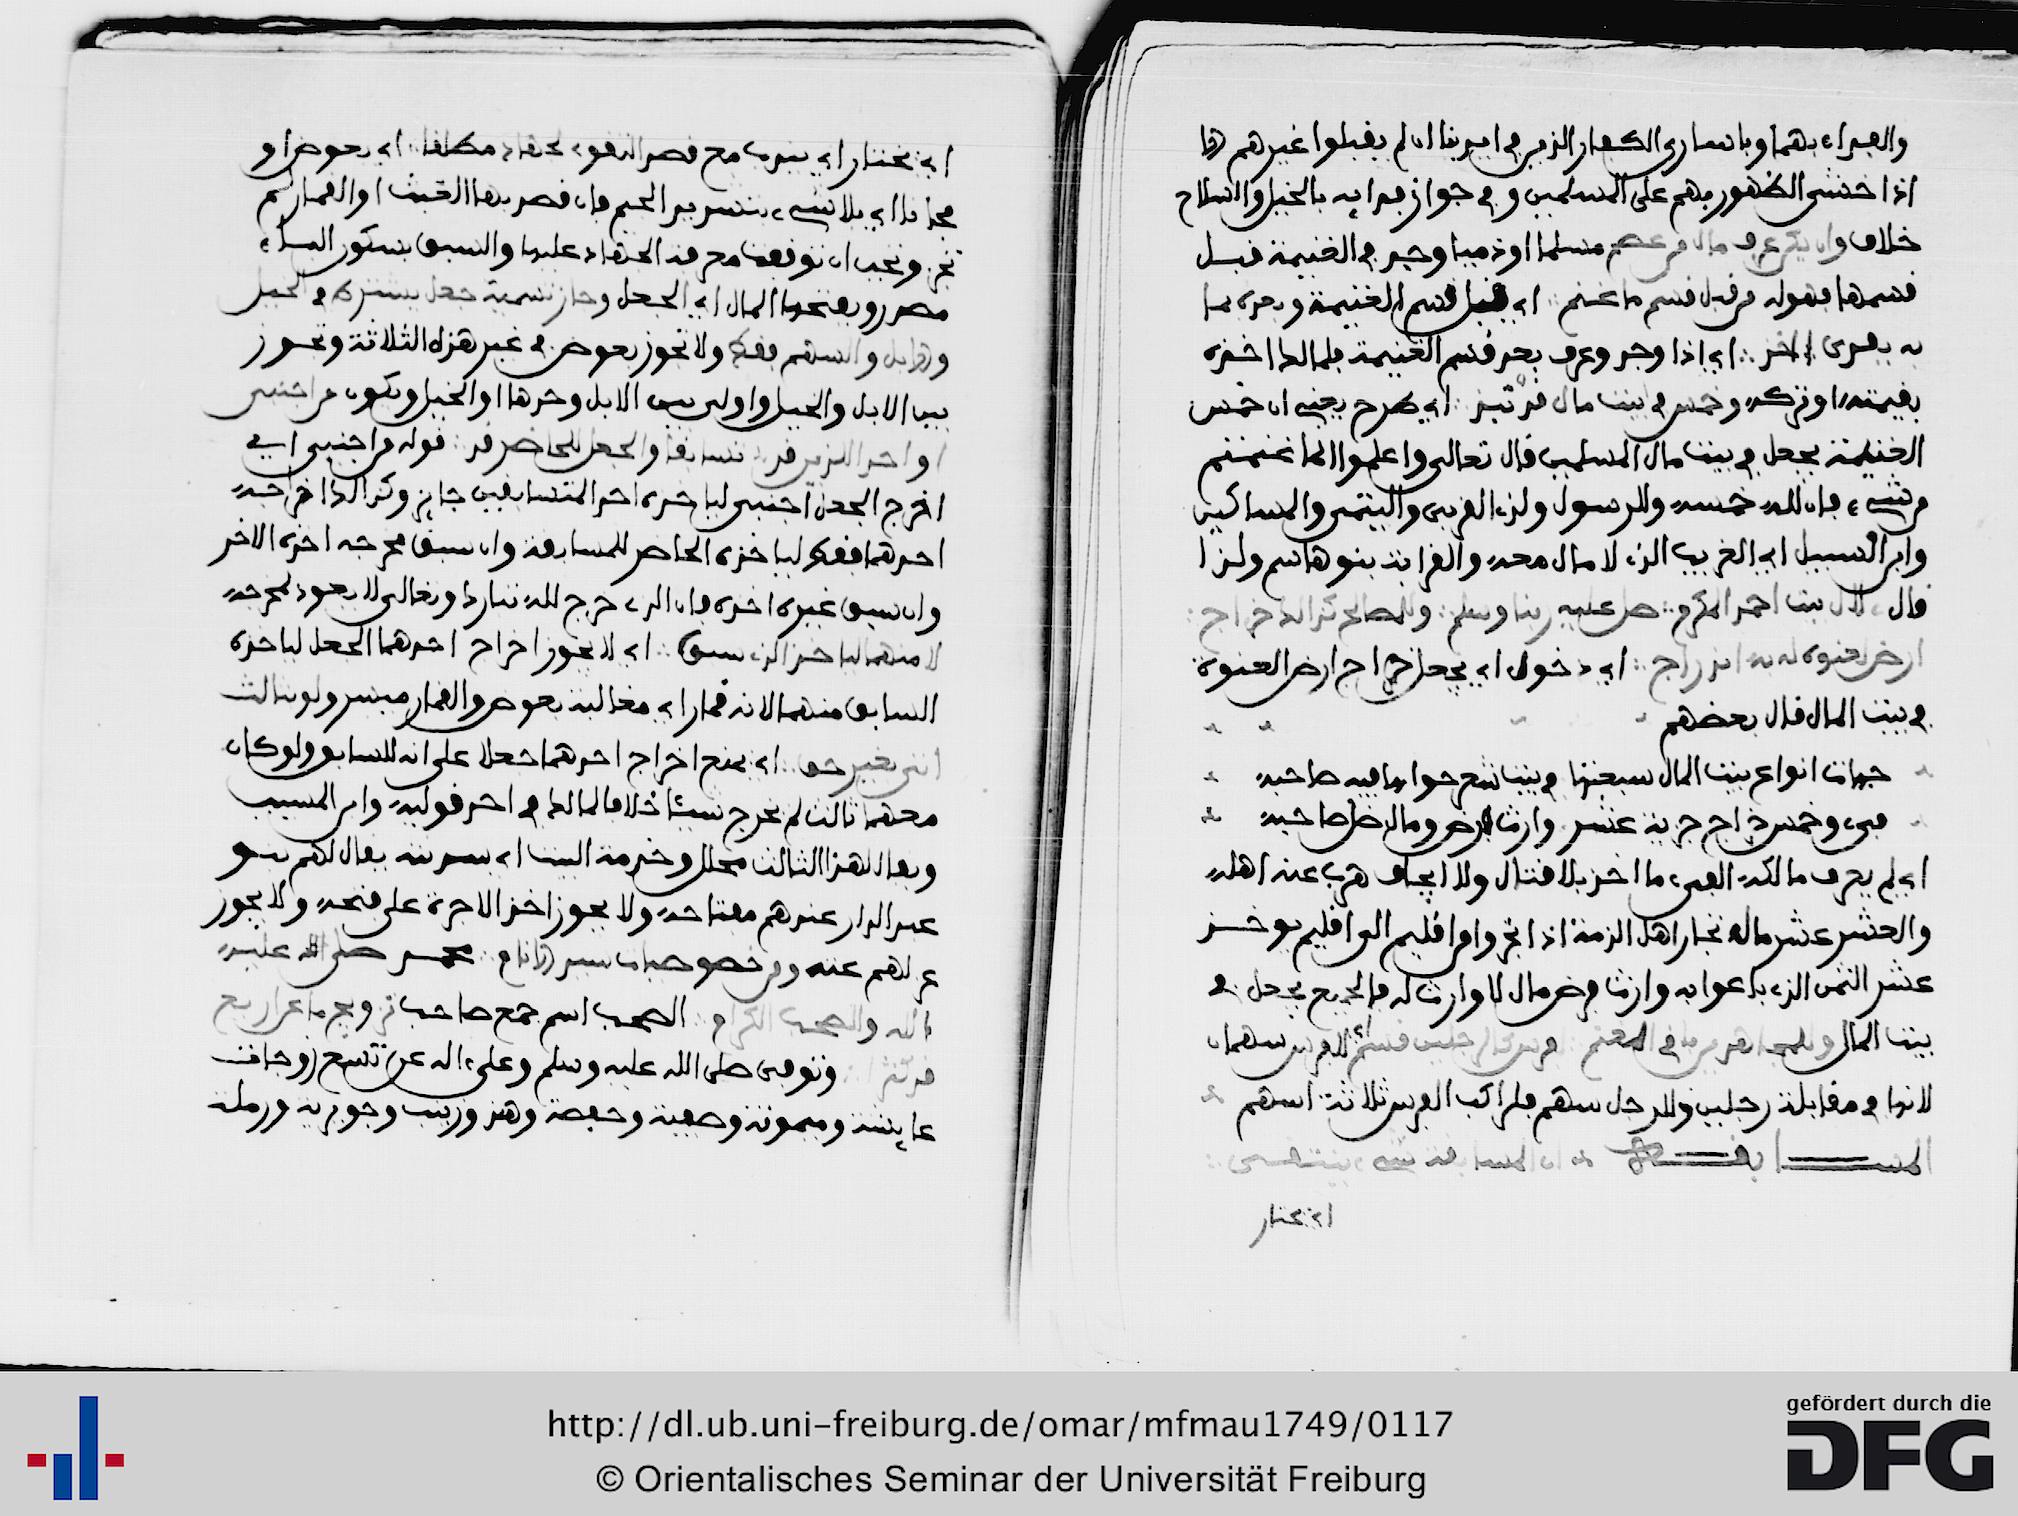 والفداء بهما وباسارى الكفار الذين في ايدينا ان لم يقبلوا غيرهم
اذا خشي الظهور بهم على المسلمين وفي جواز فدايه بالخيل والسلاح
خلاف وان يكن عرف مال من عصم مسلما او ذميا وجد في الغنيمة قبل
قسمها فهو له من قبل قسم ما غنم اي قبل قسم الغنيمة وبعده بما
به يفدى اخذ اي اذا وجد وعرف بعد قسم الغنيمة فلمالكه اخذه
بقيمته او تركه وخمس في بيت مال قد نبذ اي طرح يعني ان خمس
الغنيمة يجعل في بيت مال المسلمين قال تعالى واعلموا انما غنمتم
من شيء فان لله خمسه وللرسول ولذي القربى واليتمى والمساكين
وابن السبيل اي الغريب الذي لا مال معه والقرابة بنو هاشم ولذا
قال لال بيت احمد المكرم صلى عليه ربنا وسلم وللمصالح كذاك خراج
ارض العنوة له به اندراج اي دخول اي يجعل خراج ارض العنوة
في بيت المال قال بعضهم
جهات انواع بيت المال سبعتها في بيت شعر حواها فيه صاحبه
فيء وخمس خراج جزية عشر وارث فرض ومال ضل صاحبه
اي لم يعرف مالكه الفيء ما اخذ بلا قتال ولا ايجاف هرب عنه اهله
والعشر عشر مال تجار اهل الذمة اذا اتجروا من اقليم الى اقليم يوخذ
عشر الثمن الذي باعوا به وارث فرض مال لا وارث له فالجميع يجعل في
بيت المال وللمجاهدين باقي المغنم من رجلين قسم اي للفرس سهمان
لانها في مقابلة رجلين وللرجل سهم فلراكب الفرس ثلاثة اسهم
المسابقة ان المسابقة شيء ينتقى
اي يختار
اي يختار اي يندب مع قصد التقوي لجهاد مطلقا اي بعوض او
مجانا اي بلا شيء بتشديد الجيم فان قصد بها العبث او القمار لم
تجز وتجب ان توقفت معرفة الجهاد عليها والسبق بسكون الباء
مصدر وبفتحها المال اي الجعل وجاز تسمية جعل يشترط في الخيل
وابل والسهم فقط ولا تجوز بعوض في غير هذه الثلاثة وتجوز
بين الابل والخيل واولى بين الابل وحدها او الخيل ويكون من اجنبي
او احد اللذين قد تسابقا والجعل للحاضر قد قوله من اجنبي اي
اخرج الجعل اجنبي لياخذه احد المتسابقين جايز وكذا اذا اخرجه
احدهما فقط لياخذه الحاضر للمسابقة وان سبق مخرجه اخذه الاخر
وان سبق غيره اخذه فان الذي خرج لله تبارك وتعالى لا يعود لمخرجه
لا منهما لياخذ الذي سبق اي لا يجوز اخراج احدهما الجعل لياخذه
السابق منهما لانه قمار اي مغالبة بعوض والقمار ميسر ولو ثالث
اتى بغير حق اي يمنع اخراج احدهما جعلا على انه للسابق ولو كان
معهما ثالث لم يخرج شيئا خلافا لمالك في احد قوليه وابن المسيب
ويقال لهذا الثالث محلل وخدمة البيت اي سدنته يقال لهم بنو
عبد الدار عندهم مفتاحه ولا يجوز اخذ الاجرة على فتحه ولا يجوز
عزلهم عنه ومن خصوصيات سيد الانام محمد صلى الله عليه
اله والصحب الكرام الصحب اسم جمع صاحب
وتوفي صلى الله عليه وسلم وعلى اله عن تسع زوجات
عايشة وميمونة وصفية وحفصة وهند وزينب وجويرية ورملة
http://dl.ub.uni-freiburg.de/omar/mfmau1749/0117
© Orientalisches Seminar der Universität Freiburg
gefördert durch die
DFG